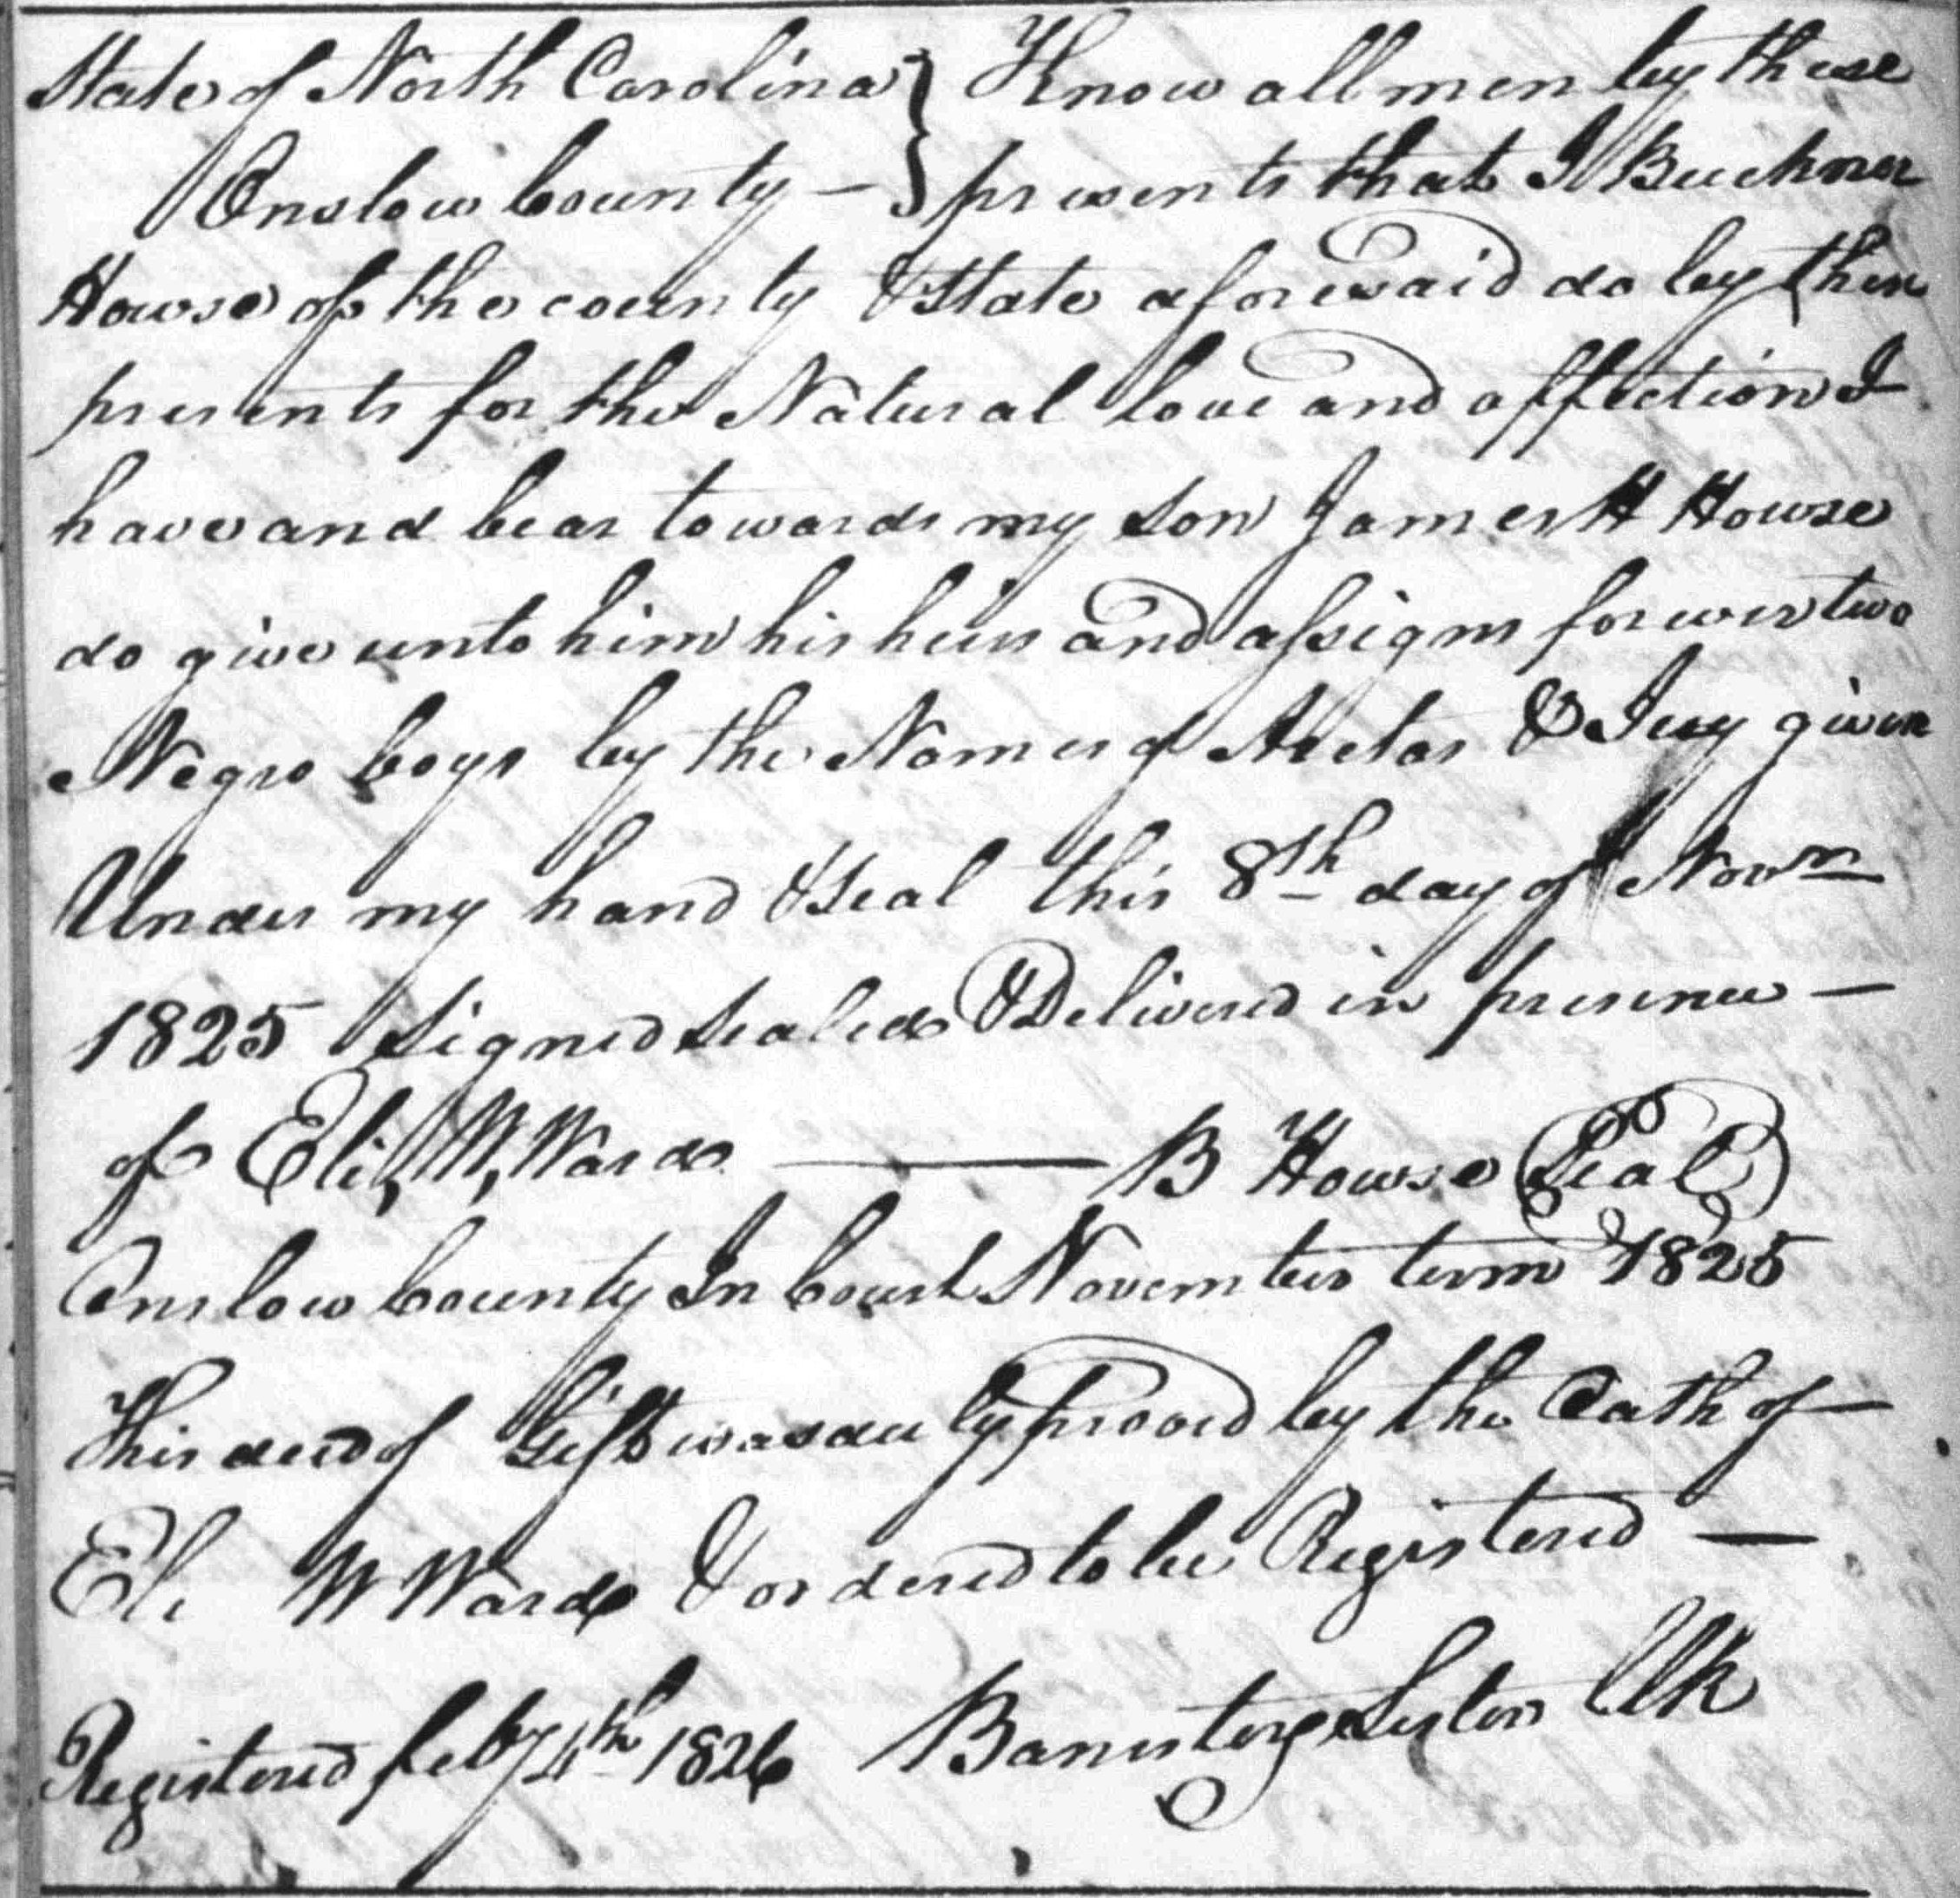 State of North Carolina } Know all men by these
Onslow County — } presents that I Buckner
Howse of the county & State aforesaid do by these
presents for the Natural love and affection I
have and bear towards my son James H Howse
do give unto him his heirs and assigns forever two
Negro boys by the Names of & given
Under my hand & Seal this 8th day of Novm
1825 Signed Sealed & Delivered in presence —
of Eli, W, Ward — B Howse Seal
Onslow County In Court November term 1825
This deed of Gift was duly proved by the Oath of —
Eli W Ward & ordered to be Registered —
Registered feby 4th 1826 Lester Clk